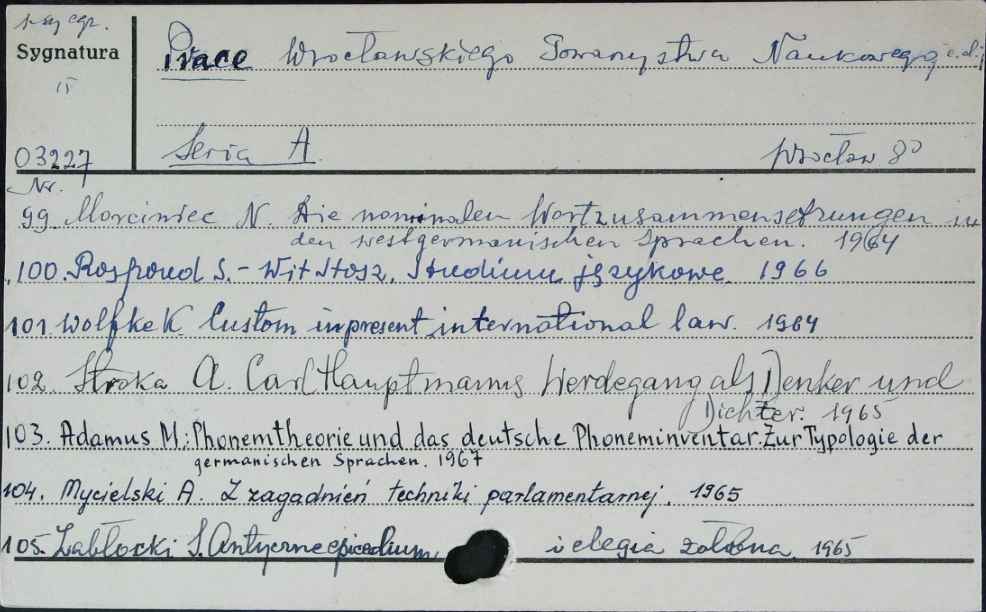 Sygnatura
Prace Wrocławskiego Towarzystwa Naukowego c.d.
03227
Seria A.
Wrocław 8°
Nr.
99. Morciniec N. Die nominalen Wortzusammensetzungen in
den westgermanischen Sprachen. 1964
100. Rospond S. - Wit Stosz. Studium językowe. 1966
101. Wolfke K. Custom in present international law. 1964
102. Stroka A. Carl Hauptmanns Werdegang als Denker und
Dichter. 1965
103. Adamus M.: Phonemtheorie und das deutsche Phoneminventar. Zur Typologie der
germanischen Sprachen. 1967
104. Mycielski A. Z zagadnień techniki parlamentarnej. 1965
105. Zabłocki S. Antyczne epicedium i elegia żałobna. 1965